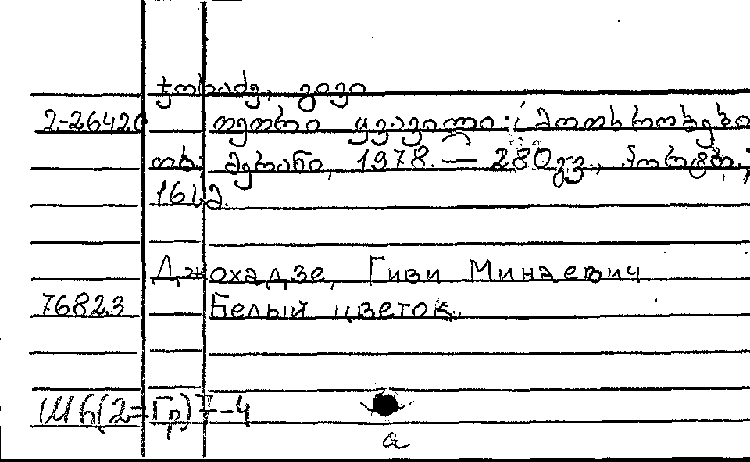 ჯოხაძე, გივი
2-26420 თეთრი ყვავილი: [მოთხრობები
თბ. მერანი, 1978. — 280გვ., პორტრ.,
16სმ.
Джохадзе, Гиви Минаевич
76823 Белый цветок.
Ш6(2=Гр)7-4
а